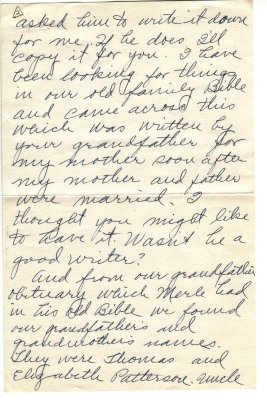 2
asked him to write it down
for me. If he does I'll
copy it for you. I have
been looking for things
in our old family Bible
and came across this
which was written by
your grandfather for
my mother soon after
my mother and father
were married. I
thought you might like
to have it. Wasn't he a
good writer?
And from our grandfather
obituary which Merle had
in his Old Bible we found
our grandfather's and
grandmother's names.
They were Thomas and
Elizabeth Patterson. Uncle